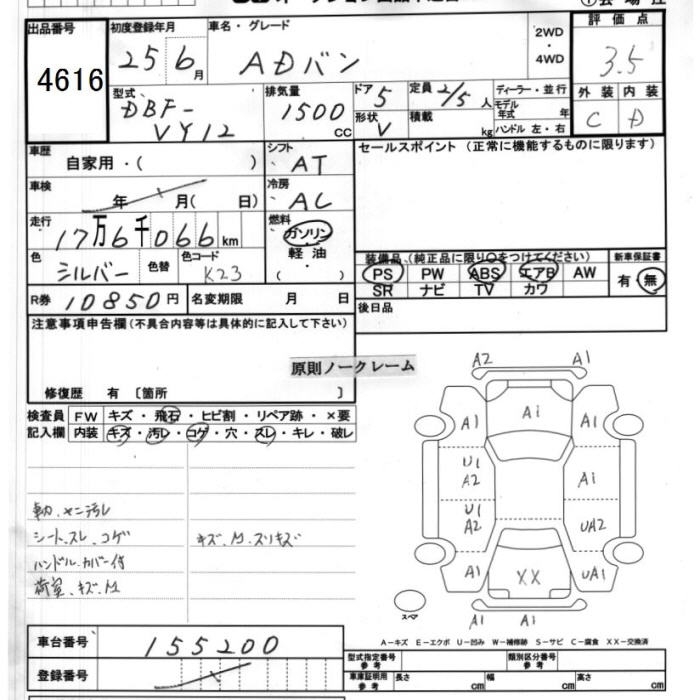 出品番号
4616
初度登録年月
25 6月
車名・グレード
ADバン
2WD
・
4WD
評価点
3.5
外装 内装
C D
型式
DBF-
VY12
排気量
1500
CC
ドア 5
形状 V
定員 2/5人
積載 kg
ディーラー・並行
モデル
年式 年
ハンドル 左・右
車歴
自家用・( )
シフト
AT
セールスポイント (正常に機能するものに限ります)
車検
年 月( 日)
冷房
AC
走行
17万6千066km
燃料
ガソリン
・
軽油
( )
色
シルバー
色替
色コード
K23
装備品 (純正品に限り○をつけてください)
PS PW ABS エアB AW
SR ナビ TV カワ
新車保証書
有・無
R券 10850円
名変期限 月 日
後日品
注意事項申告欄(不具合内容等は具体的に記入して下さい)
原則ノークレーム
修復歴 有 〔箇所 〕
検査員
記入欄
FW キズ・飛石・ヒビ割・リペア跡・×要
内装 キズ・汚レ・コゲ・穴・スレ・キレ・破レ
シート.スレ.コゲ
キズ.M.スリキズ
ハンドル.カバー付
荷室.キズ.M
A2 A1
A1 A1 A1
U1
A2 A1
U1
A2 UA2
A1 XX UA1
A1 A1
スペア
A-キズ E-エクボ U-凹み W-補修跡 S-サビ C-腐食 XX-交換済
車台番号
155200
登録番号
型式指定番号
参考
類別区分番号
参考
車庫証明用
参考
長さ cm
幅 cm
高さ cm